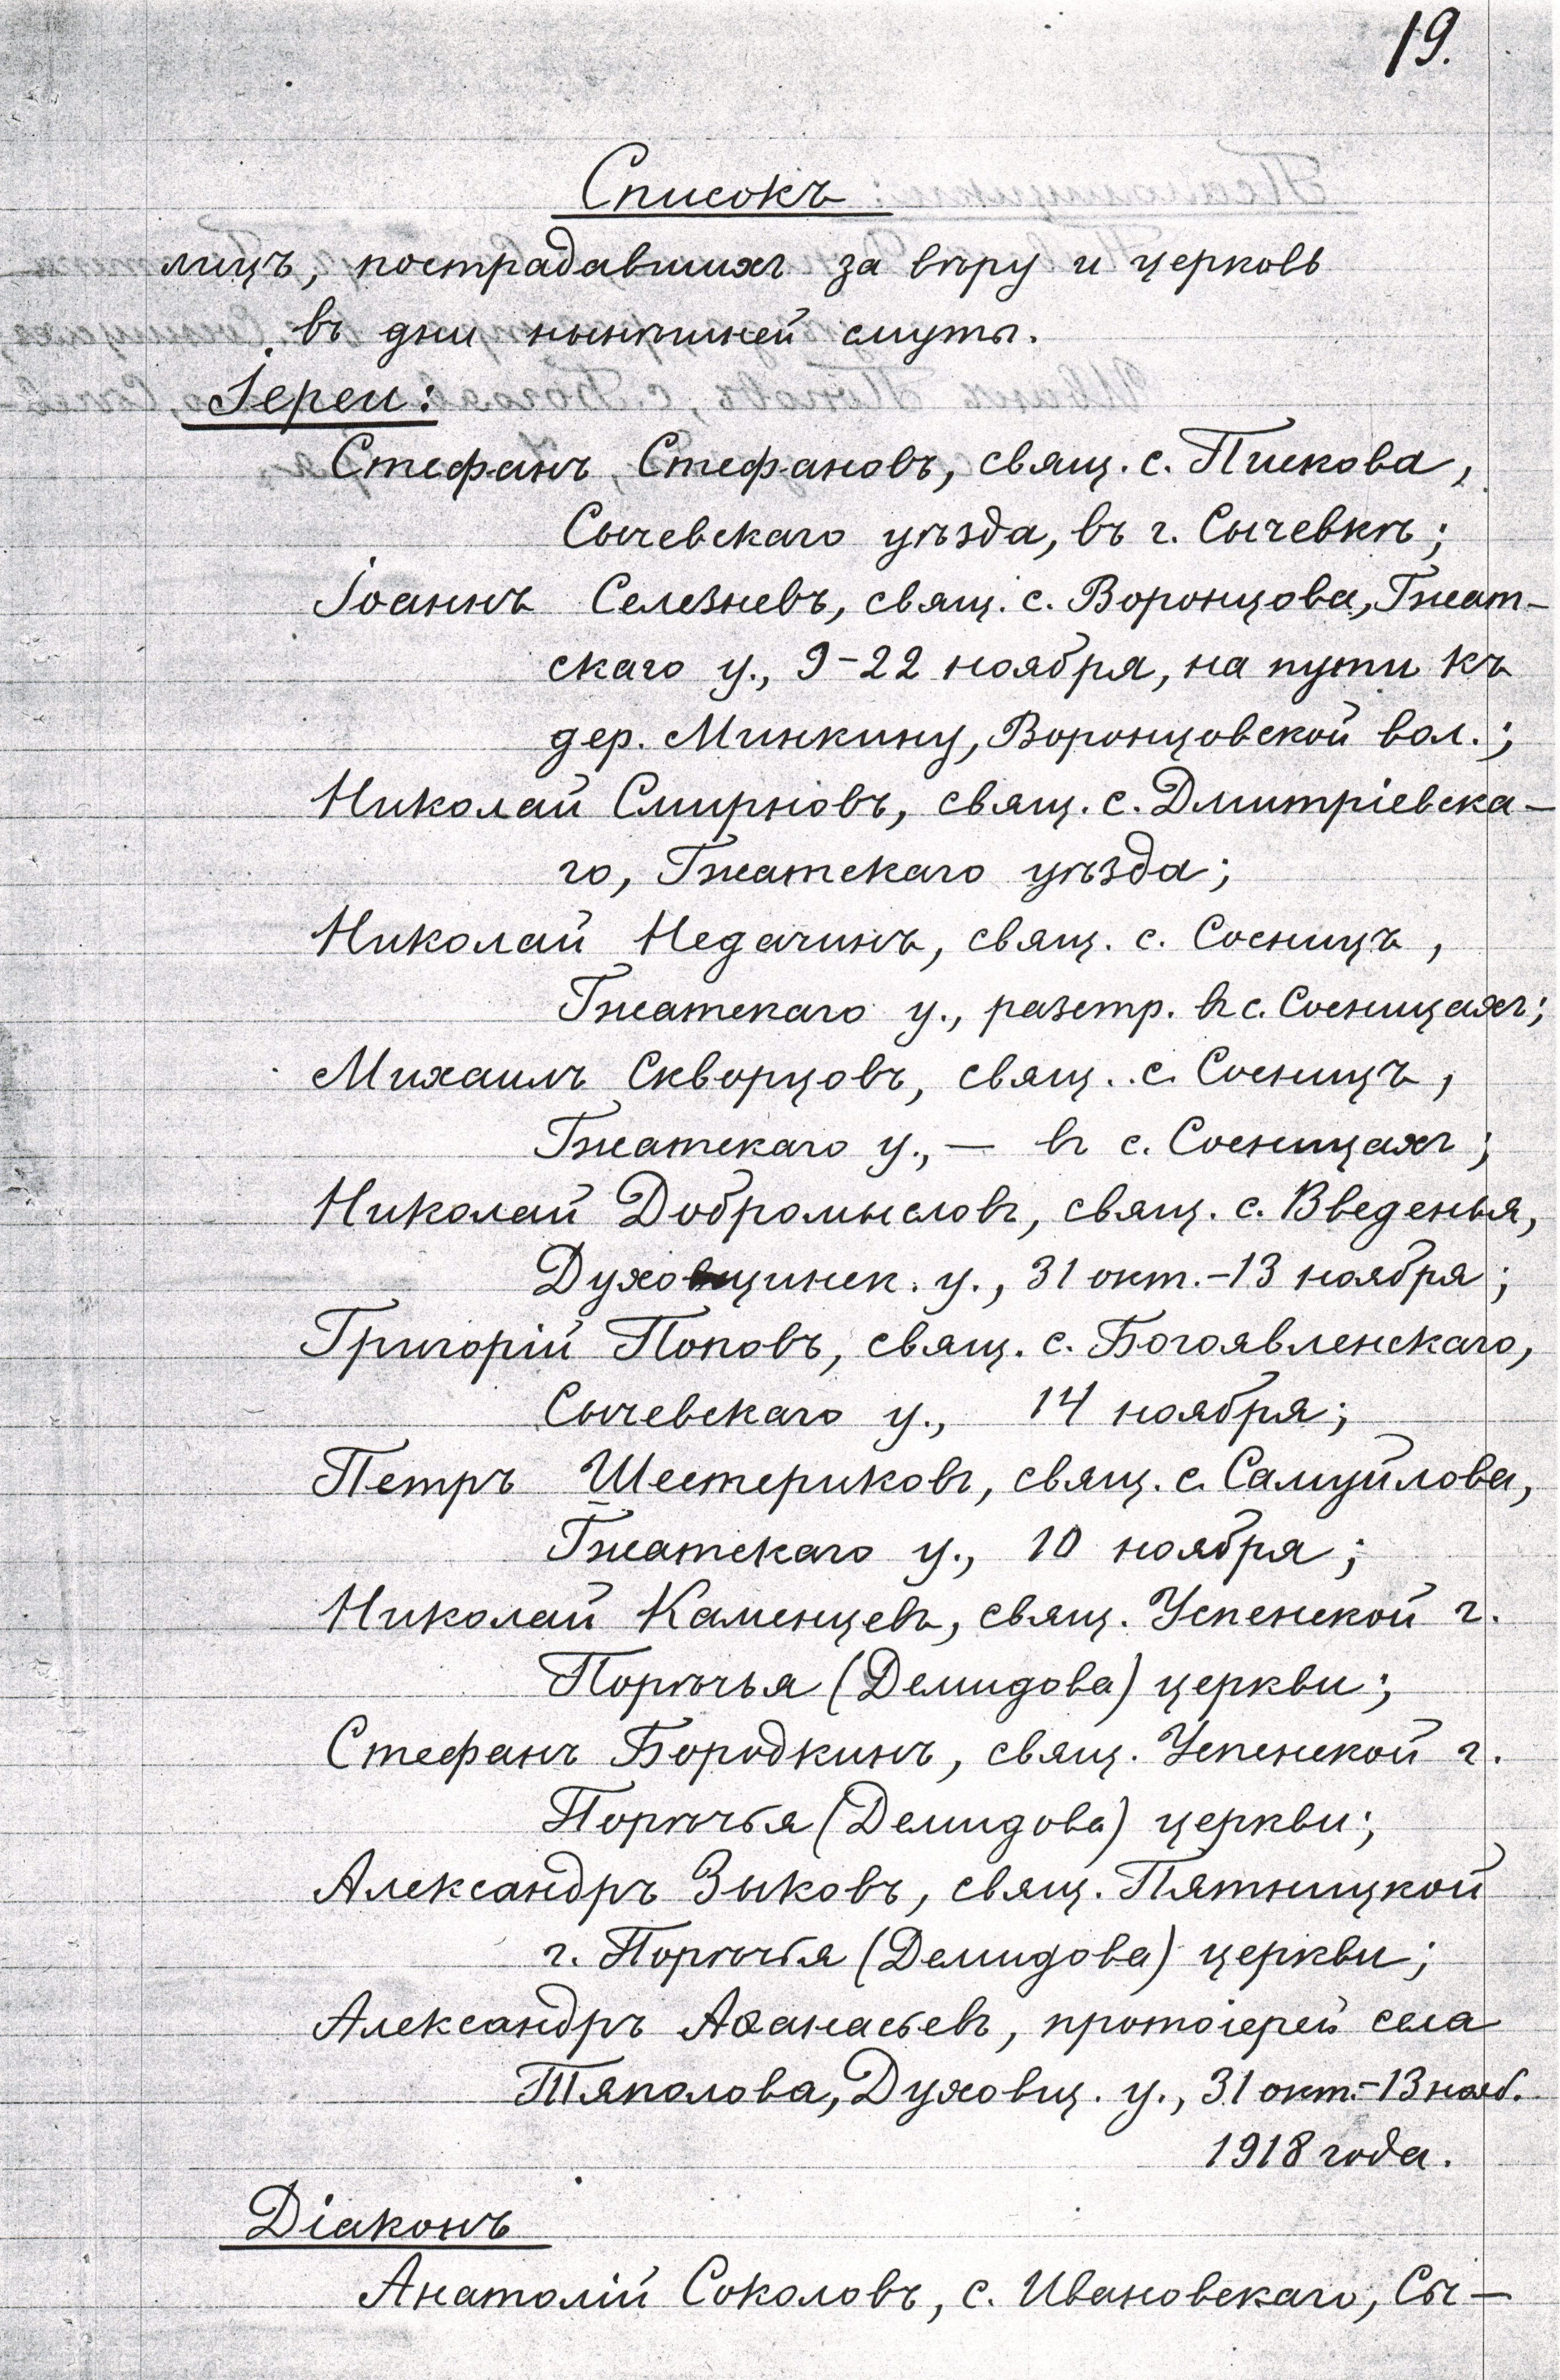 19.
Списокъ
лицъ, пострадавшихъ за вѣру и церковь
въ дни нынѣшней смуты.
Іереи:
Стефанъ Стефановъ, свящ. с. Пискова,
Сычевскаго уѣзда, въ г. Сычевкѣ;
Іоаннъ Селезневъ, свящ. с. Воронцова, Гжат-
скаго у., 9-22 ноября, на пути къ
дер. Минкину, Воронцовской вол.;
Николай Смирновъ, свящ. с. Дмитріевска-
го, Гжатскаго уѣзда;
Николай Недачинъ, свящ. с. Сосницъ,
Гжатскаго у., разстр. въ с. Сосницахъ;
Михаилъ Скворцовъ, свящ. с. Сосницъ,
Гжатскаго у., — въ с. Сосницахъ;
Николай Добромысловъ, свящ. с. Введенья,
Духовщинск. у., 31 окт.-13 ноября;
Григорій Поповъ, свящ. с. Богоявленскаго,
Сычевскаго у., 14 ноября;
Петръ Шестериковъ, свящ. с. Самуйлова,
Гжатскаго у., 10 ноября;
Николай Каменцевъ, свящ. Успенской г.
Порѣчья (Демидова) церкви;
Стефанъ Бородкинъ, свящ. Успенской г.
Порѣчья (Демидова) церкви;
Александръ Зыковъ, свящ. Пятницкой
г. Порѣчья (Демидова) церкви;
Александръ Аѳанасьевъ, протоіерей села
Тяполова, Духовщ. у., 31 окт.-13 нояб.
1918 года.
Діаконъ
Анатолій Соколовъ, с. Ивановскаго, Сы-